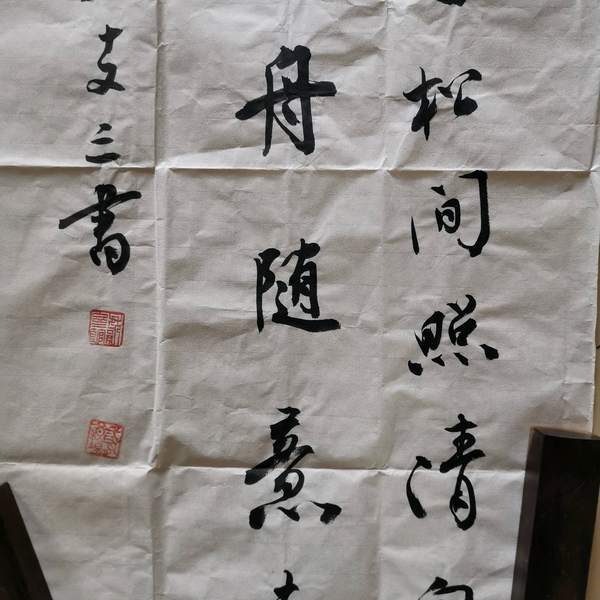 松间照清
舟随意
三書